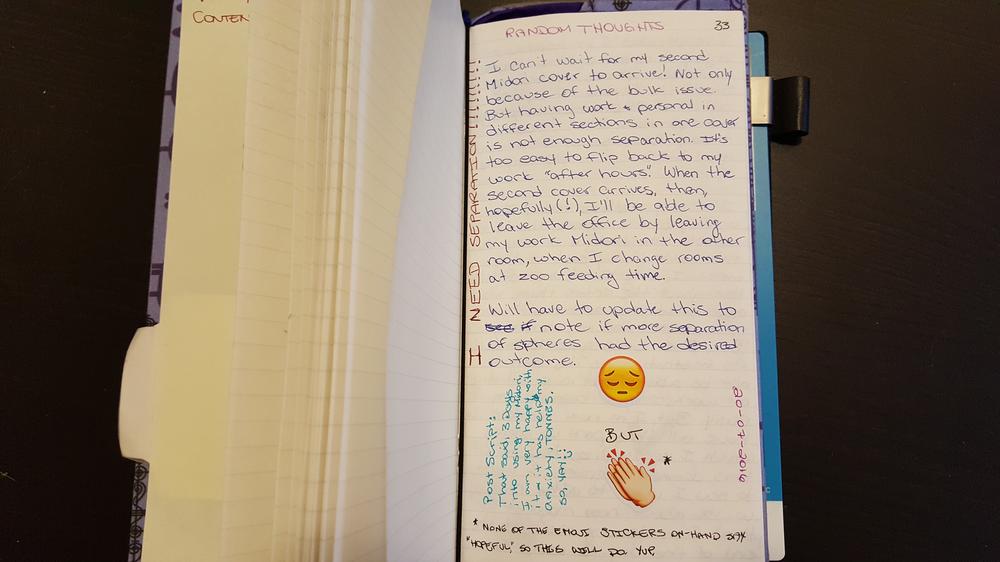 CONTEN
RANDOM THOUGHTS
33
I NEED SEPARATION!!!!!!!!
I can't wait for my second
Midori cover to arrive! Not only
because of the bulk issue.
But having work + personal in
different sections in one cover
is not enough separation. It's
too easy to flip back to my
work "after hours". When the
second cover arrives, then,
hopefully(!), I'll be able to
leave the office by leaving
my work Midori in the other
room, when I change rooms
at zoo feeding time.
Will have to update this to
see if note if more separation
of spheres had the desired
outcome.
Post Script:
That said, 3 Days
into using my Midori,
I am very happy with
it + it has help my
anxiety, TONNES.
so, YAY!!
BUT
*
* NONE OF THE EMOJI STICKERS ON-HAND SAY
"HOPEFUL," SO THIS WILL DO. YUP